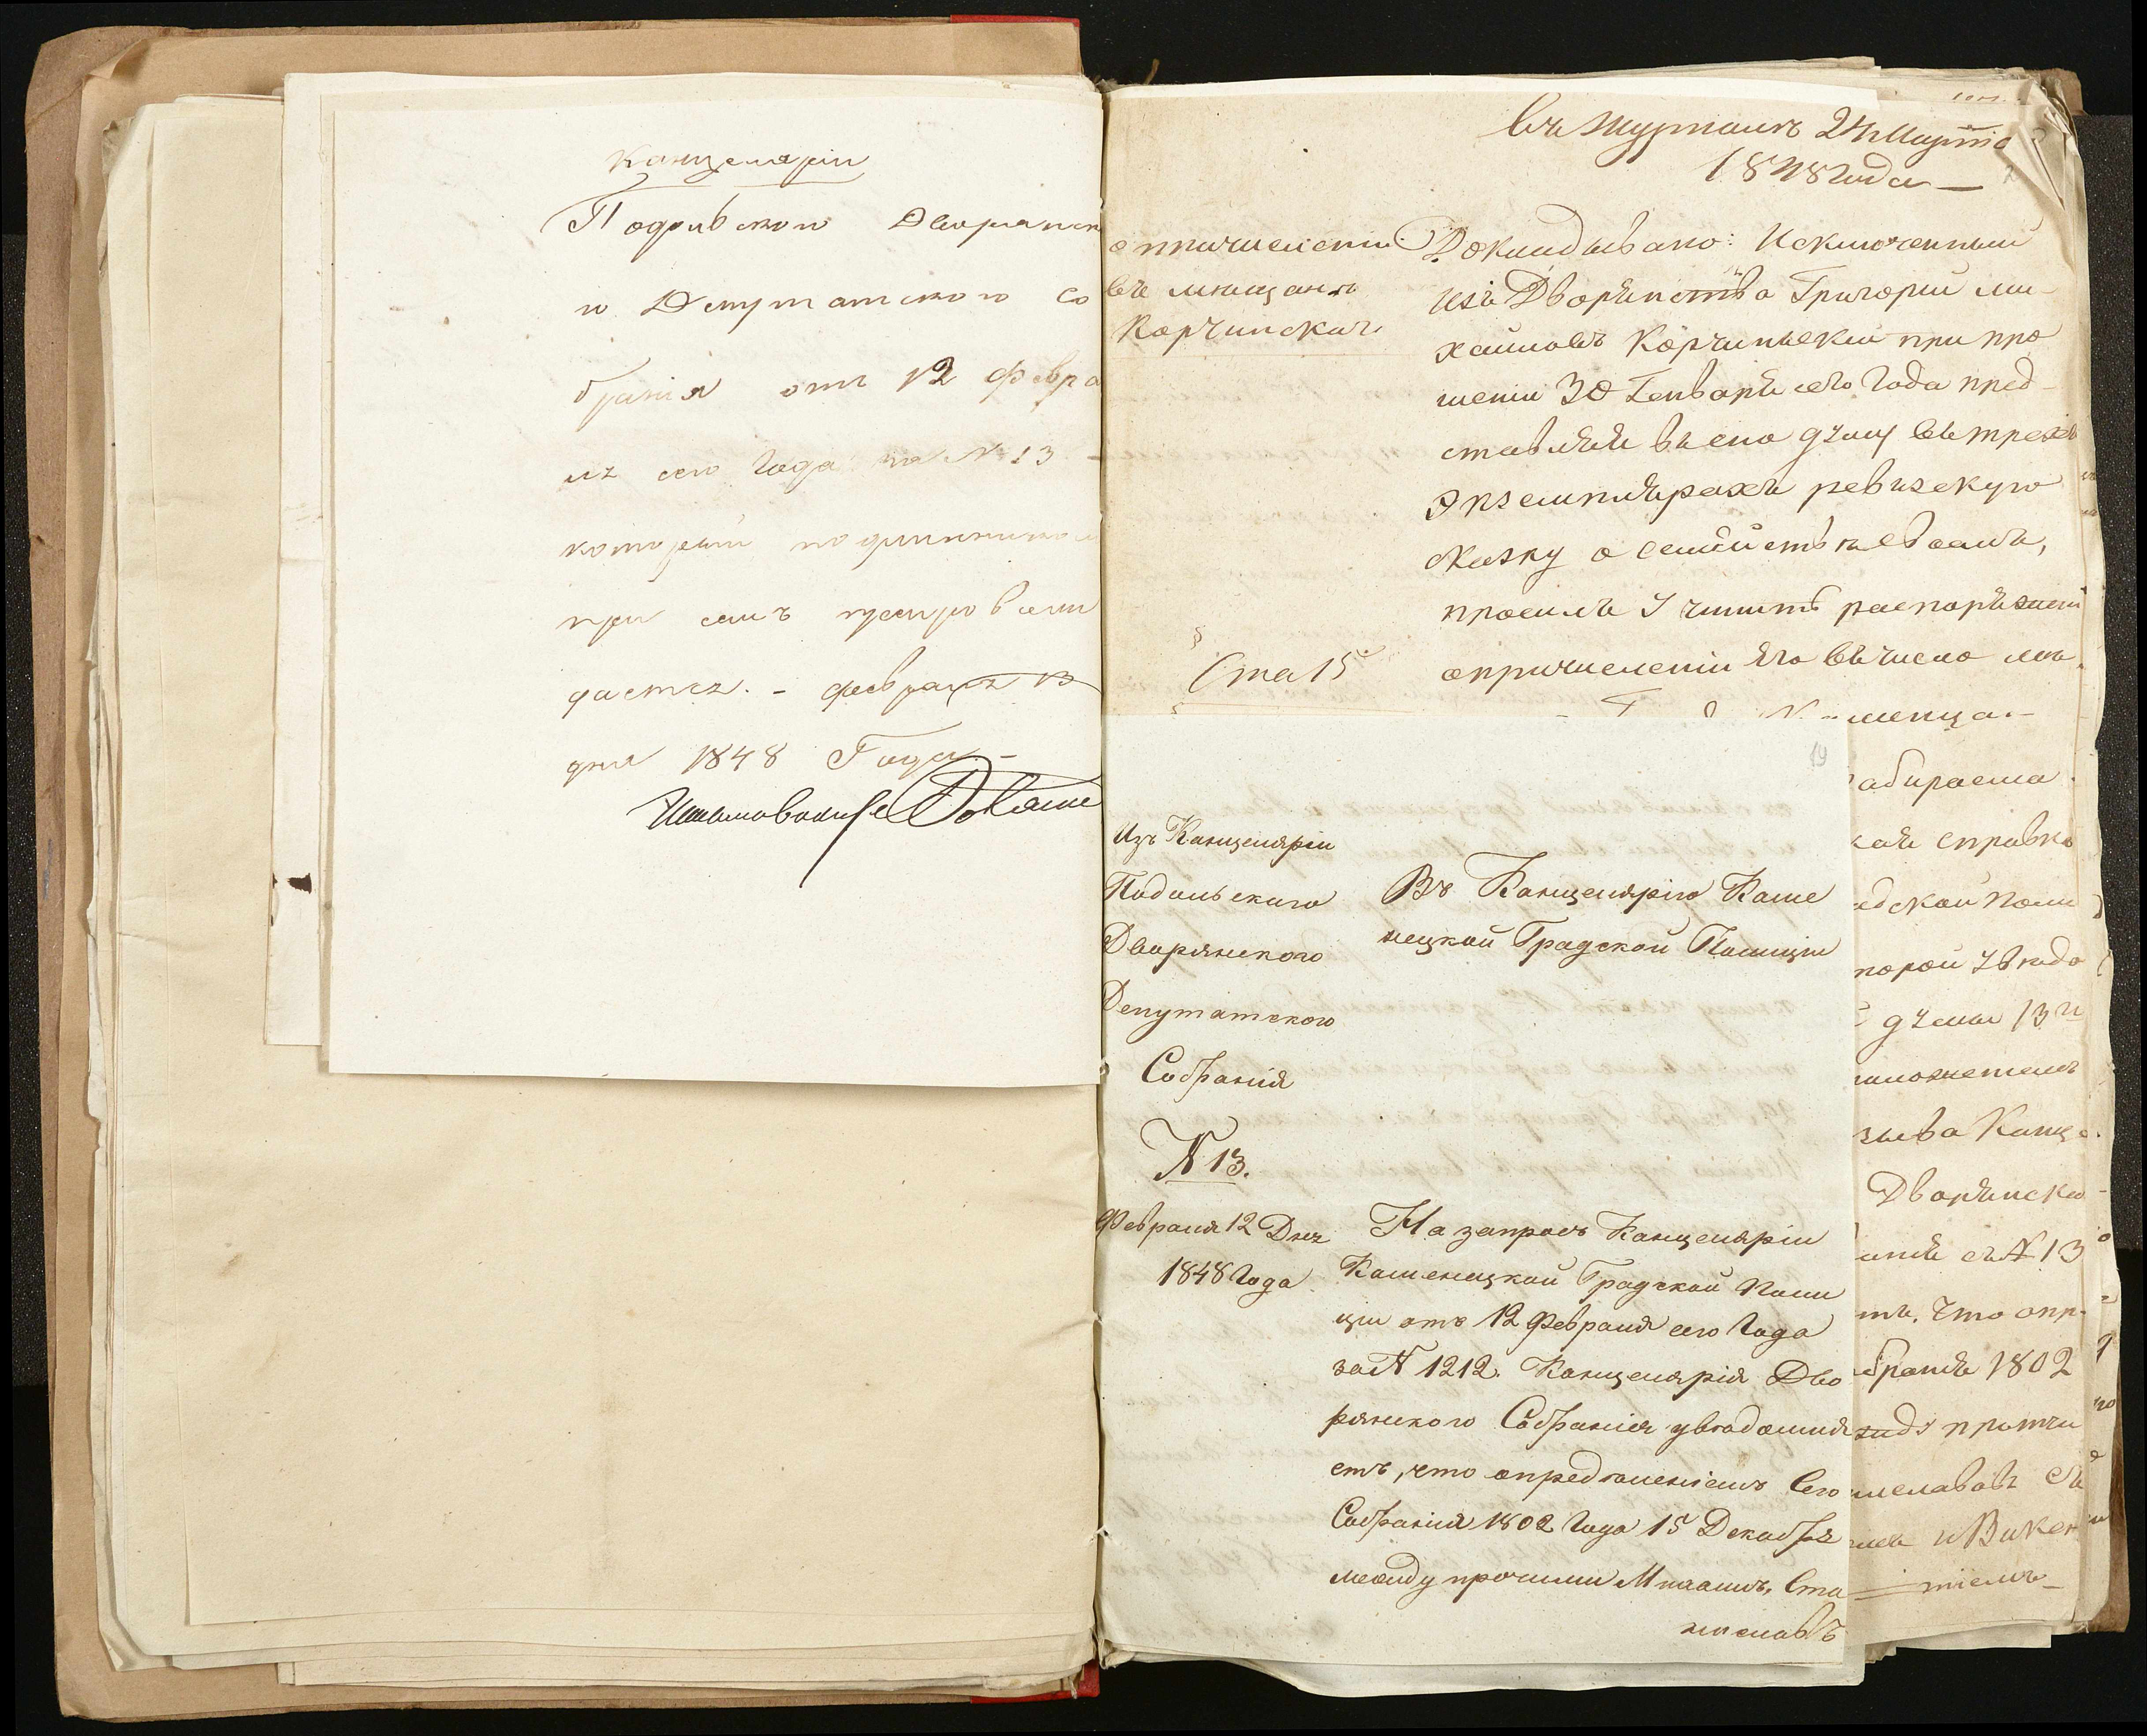 Канцеляріи
Подольского Дворянск
и Депутатского Со
бранія отъ 12 Февра
ля сего Года за № 13 –
который подлинникомъ
при семъ препровож
дается. – февраля 13
дня 1848 Года –
въ Журналъ 24 Марта
1848 Года —
о причисленіи
въ мѣщане
Корчинскаго
Ста 15
Докладывано: Исключенный
изъ Дворянства Григорій Ми-
хайловъ Корчинскій при про
шеніи 30 Генваря сего Года пред-
ставляя въ сію Думу въ трехъ
Экземплярахъ ревизскую
сказку о Семействѣ своемъ,
просилъ Учинить распоряжені
о причисленіи Его въ число мѣ
менца. –
абираема
кая справка
адской Поли
торой Увѣдо
Думы 13
зыва Канце
Дворянско
анія съ № 13
ть, Что опр.
обранія 1802
прочи
иславовъ Съ
и Викен
тіемъ –
19
Изъ Канцеляріи
Подольскаго
Дворянского
Депутатского
Собранія
№ 13.
Февраля 12 Дня
1848 Года
Въ Канцелярію Каме
нецкой Градской Полиціи
На запросъ Канцеляріи
Каменецкой Градской Поли
ціи отъ 12 Февраля сего Года
за № 1212. Канцелярія Дво
рянского Собранія увѣдомля
етъ, что опредѣленіемъ Сего
Собранія 1802 Года 15 Декабря
между прочими Михаилъ, Ста
ниславъ